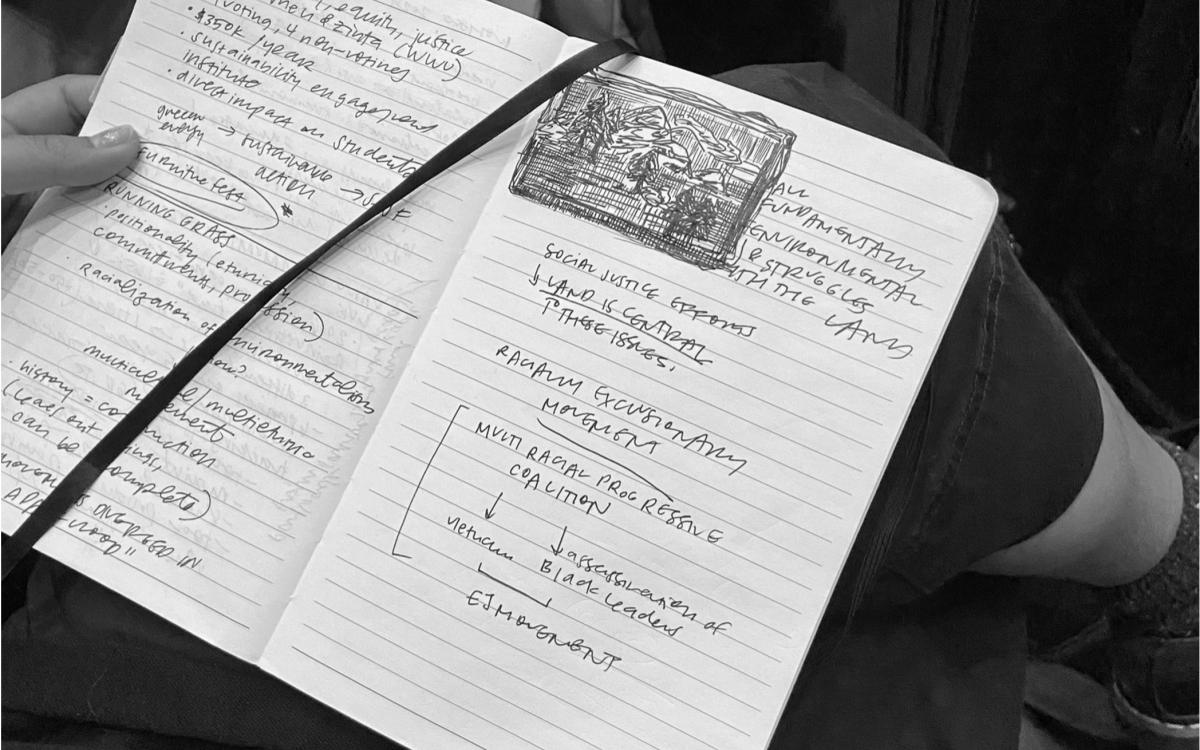 , equity, justice
men & zinta (WWU)
voting, 4 non-voting
• $350k / year
• sustainability engagement
institute
• direct impact on students
green → sustainable →
energy action
furniture fest *
RUNNING GRASS
• positionality (ethnicity,
commitments, profession)
• Racialization of environmentalism
now?
multicultural/multiethnic
movement
• history = construction
(leaves out things,
can be incomplete)
IN
ALL
FUNDAMENTALLY
ENVIRONMENTAL
& STRUGGLES
WITH THE LAND
SOCIAL JUSTICE EFFORTS
↓ LAND IS CENTRAL
TO THESE ISSUES.
RACIALLY EXCLUSIONARY
MOVEMENT
MULTI RACIAL PROGRESSIVE
COALITION
↓ ↓
Vietnam assassination of
Black leaders
EJ MOVEMENT